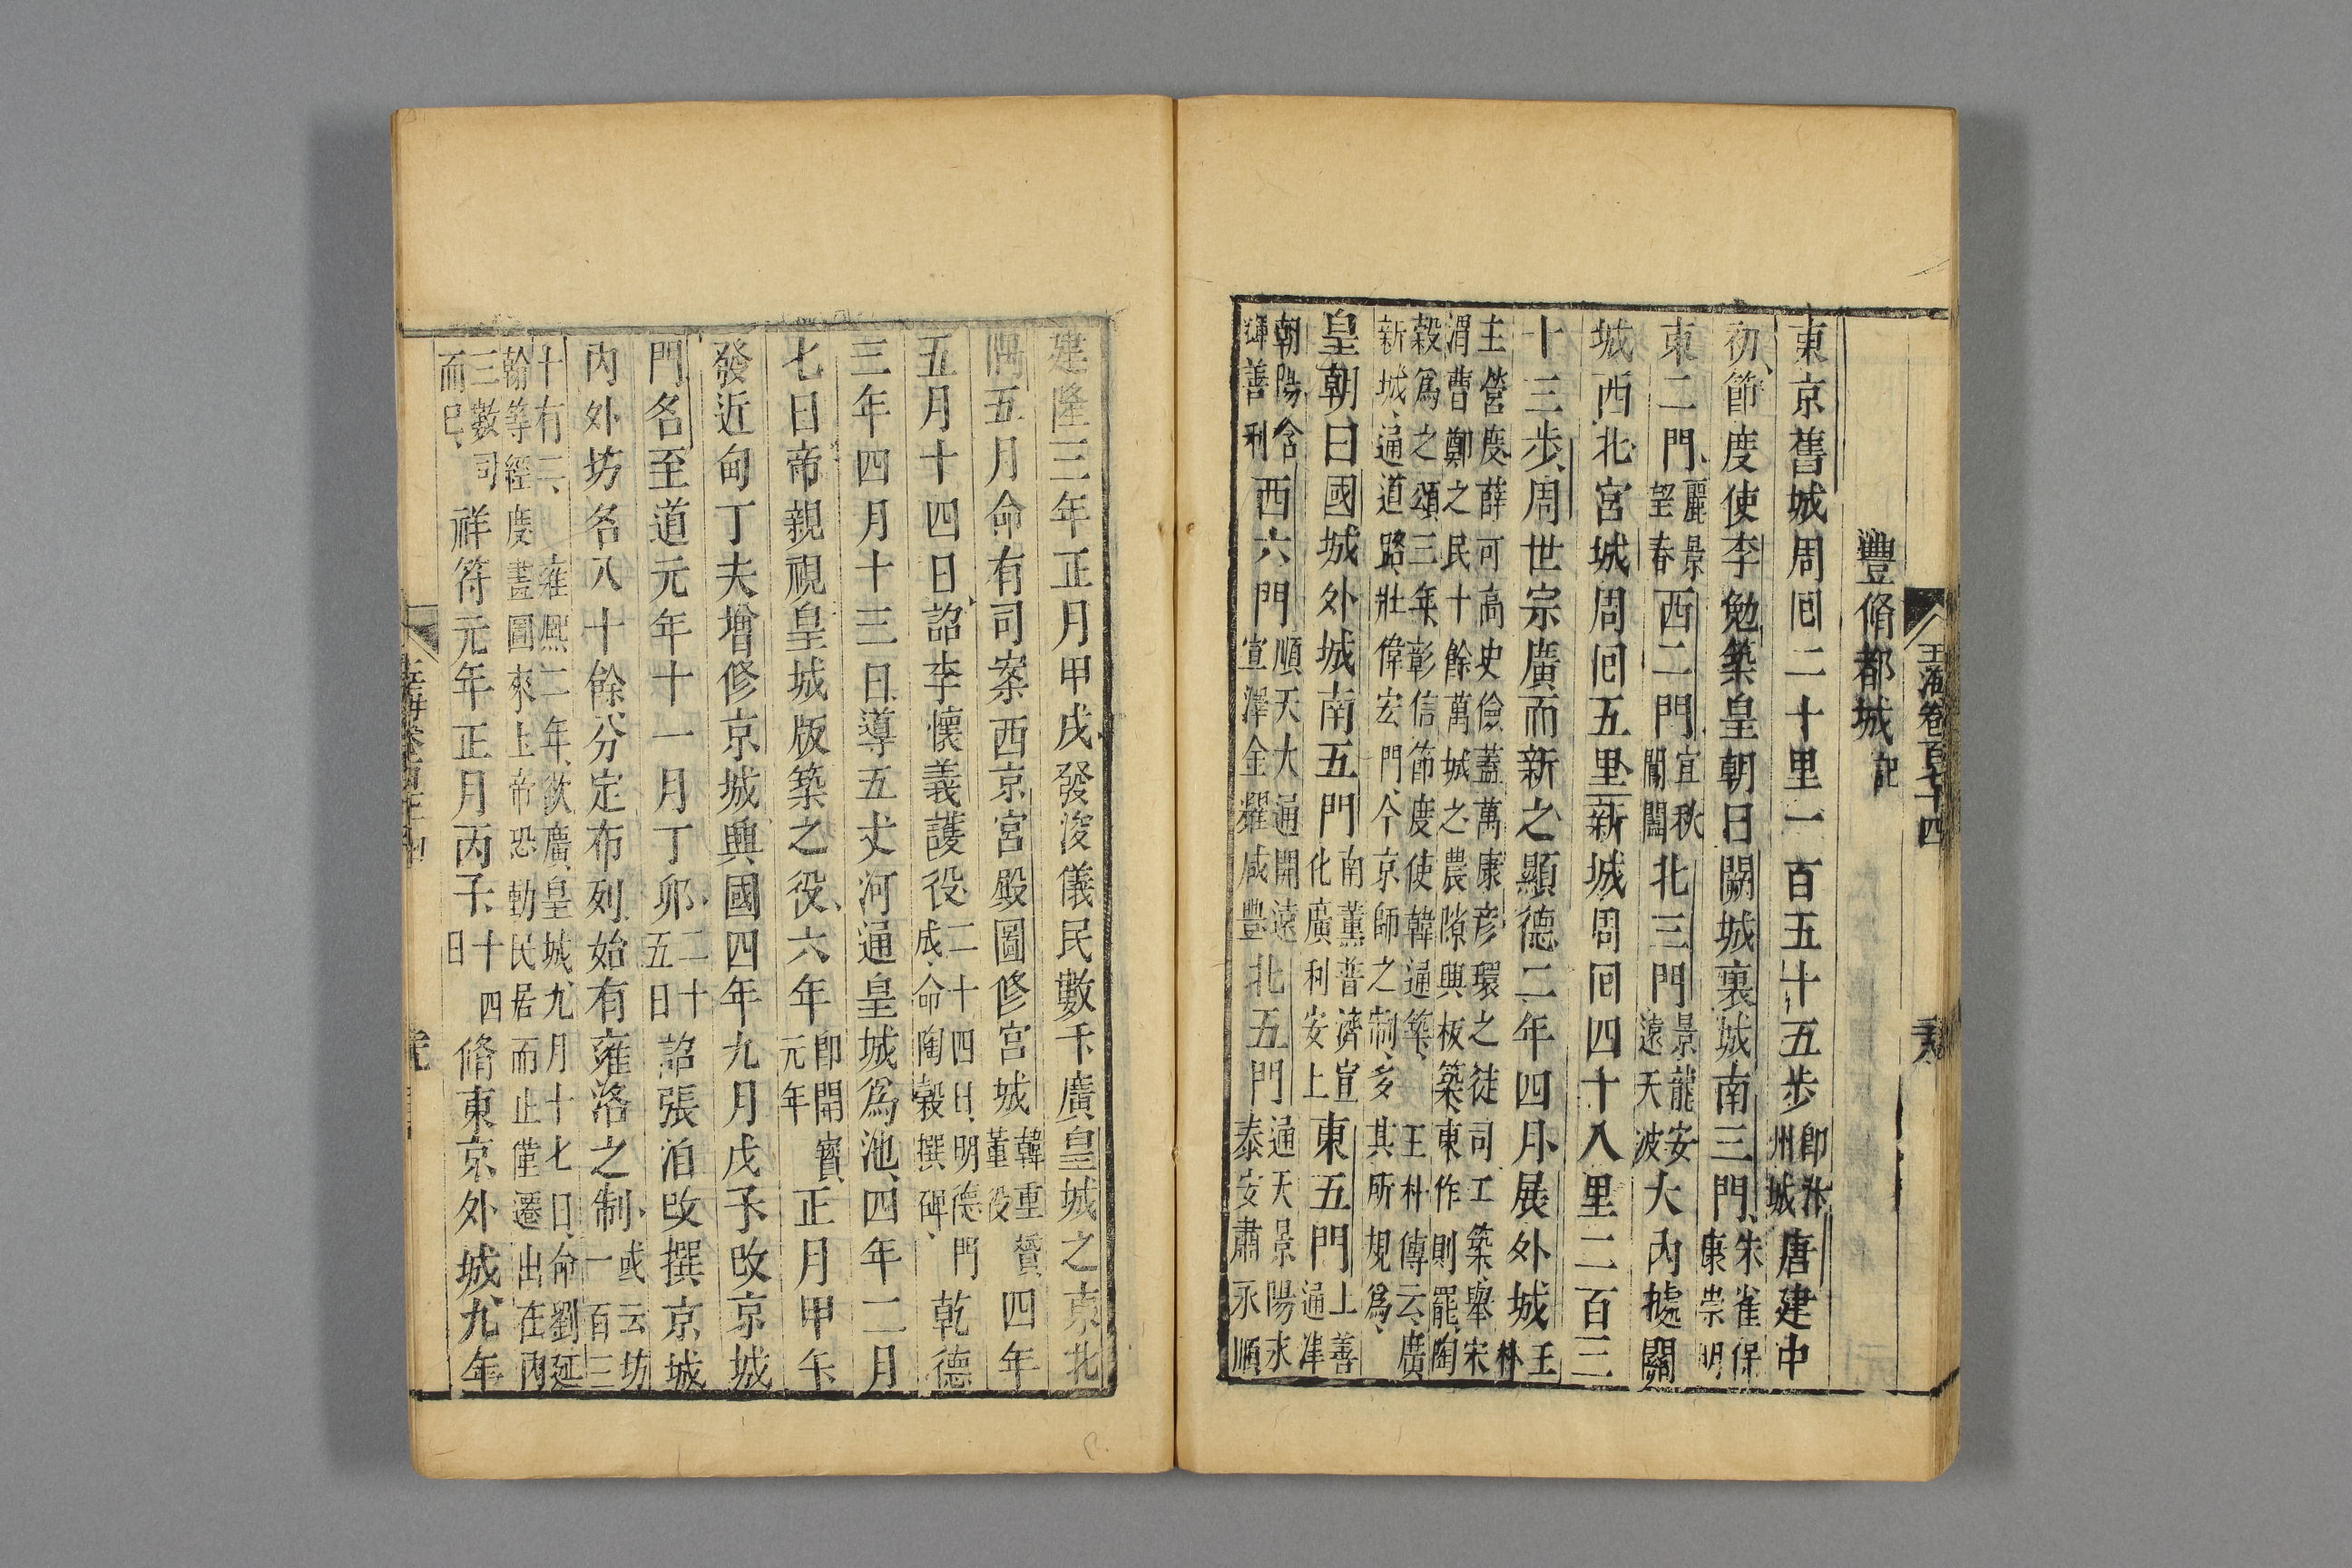 玉海卷百七十四
豐脩都城記
東京舊城周囘二十里一百五十五步卽汴州城唐建中
初節度使李勉築皇朝曰闕城裏城南三門朱雀保康崇明
東二門麗景望春西二門宜秋閶闔北三門景龍安遠天波大內據闕
城西北宮城周囘五里新城周囘四十八里二百三
十三步周世宗廣而新之顯德二年四月展外城王朴
主營度薛可言史儉蓋萬康彥環之徒司工築舉宋
滑曹鄭之民十餘萬城之農隙興板築東作則罷陶
穀爲之頌三年彰信節度使韓通築王朴傳云廣
新城通道路壯偉宏門今京師之制多其所規爲
皇朝曰國城外城南五門南薰普濟宣化廣利安上東五門上善通津
朝陽含輝善利西六門順天大通開遠宣澤金耀咸豐北五門通天景陽永泰安肅永順
建隆三年正月甲戌發浚儀民數千廣皇城之東北
隅五月命有司案西京宮殿圖修宮城韓重贇董役四年
五月十四日詔李懷義護役二十四日明德門成命陶穀撰碑乾德
三年四月十三日導五丈河通皇城爲池四年二月
七日帝親視皇城版築之役六年卽開寶元年正月甲午
發近甸丁夫增修京城興國四年九月戊子改京城
門名至道元年十一月丁卯二十五日詔張洎改撰京城
內外坊名八十餘分定布列始有雍洛之制或云坊一百三
十有三雍熙二年欲廣皇城九月十七日命劉延
翰等經度畫圖來上帝恐動民居而止僅遷出在內
三數司而已祥符元年正月丙子十四日脩東京外城九年